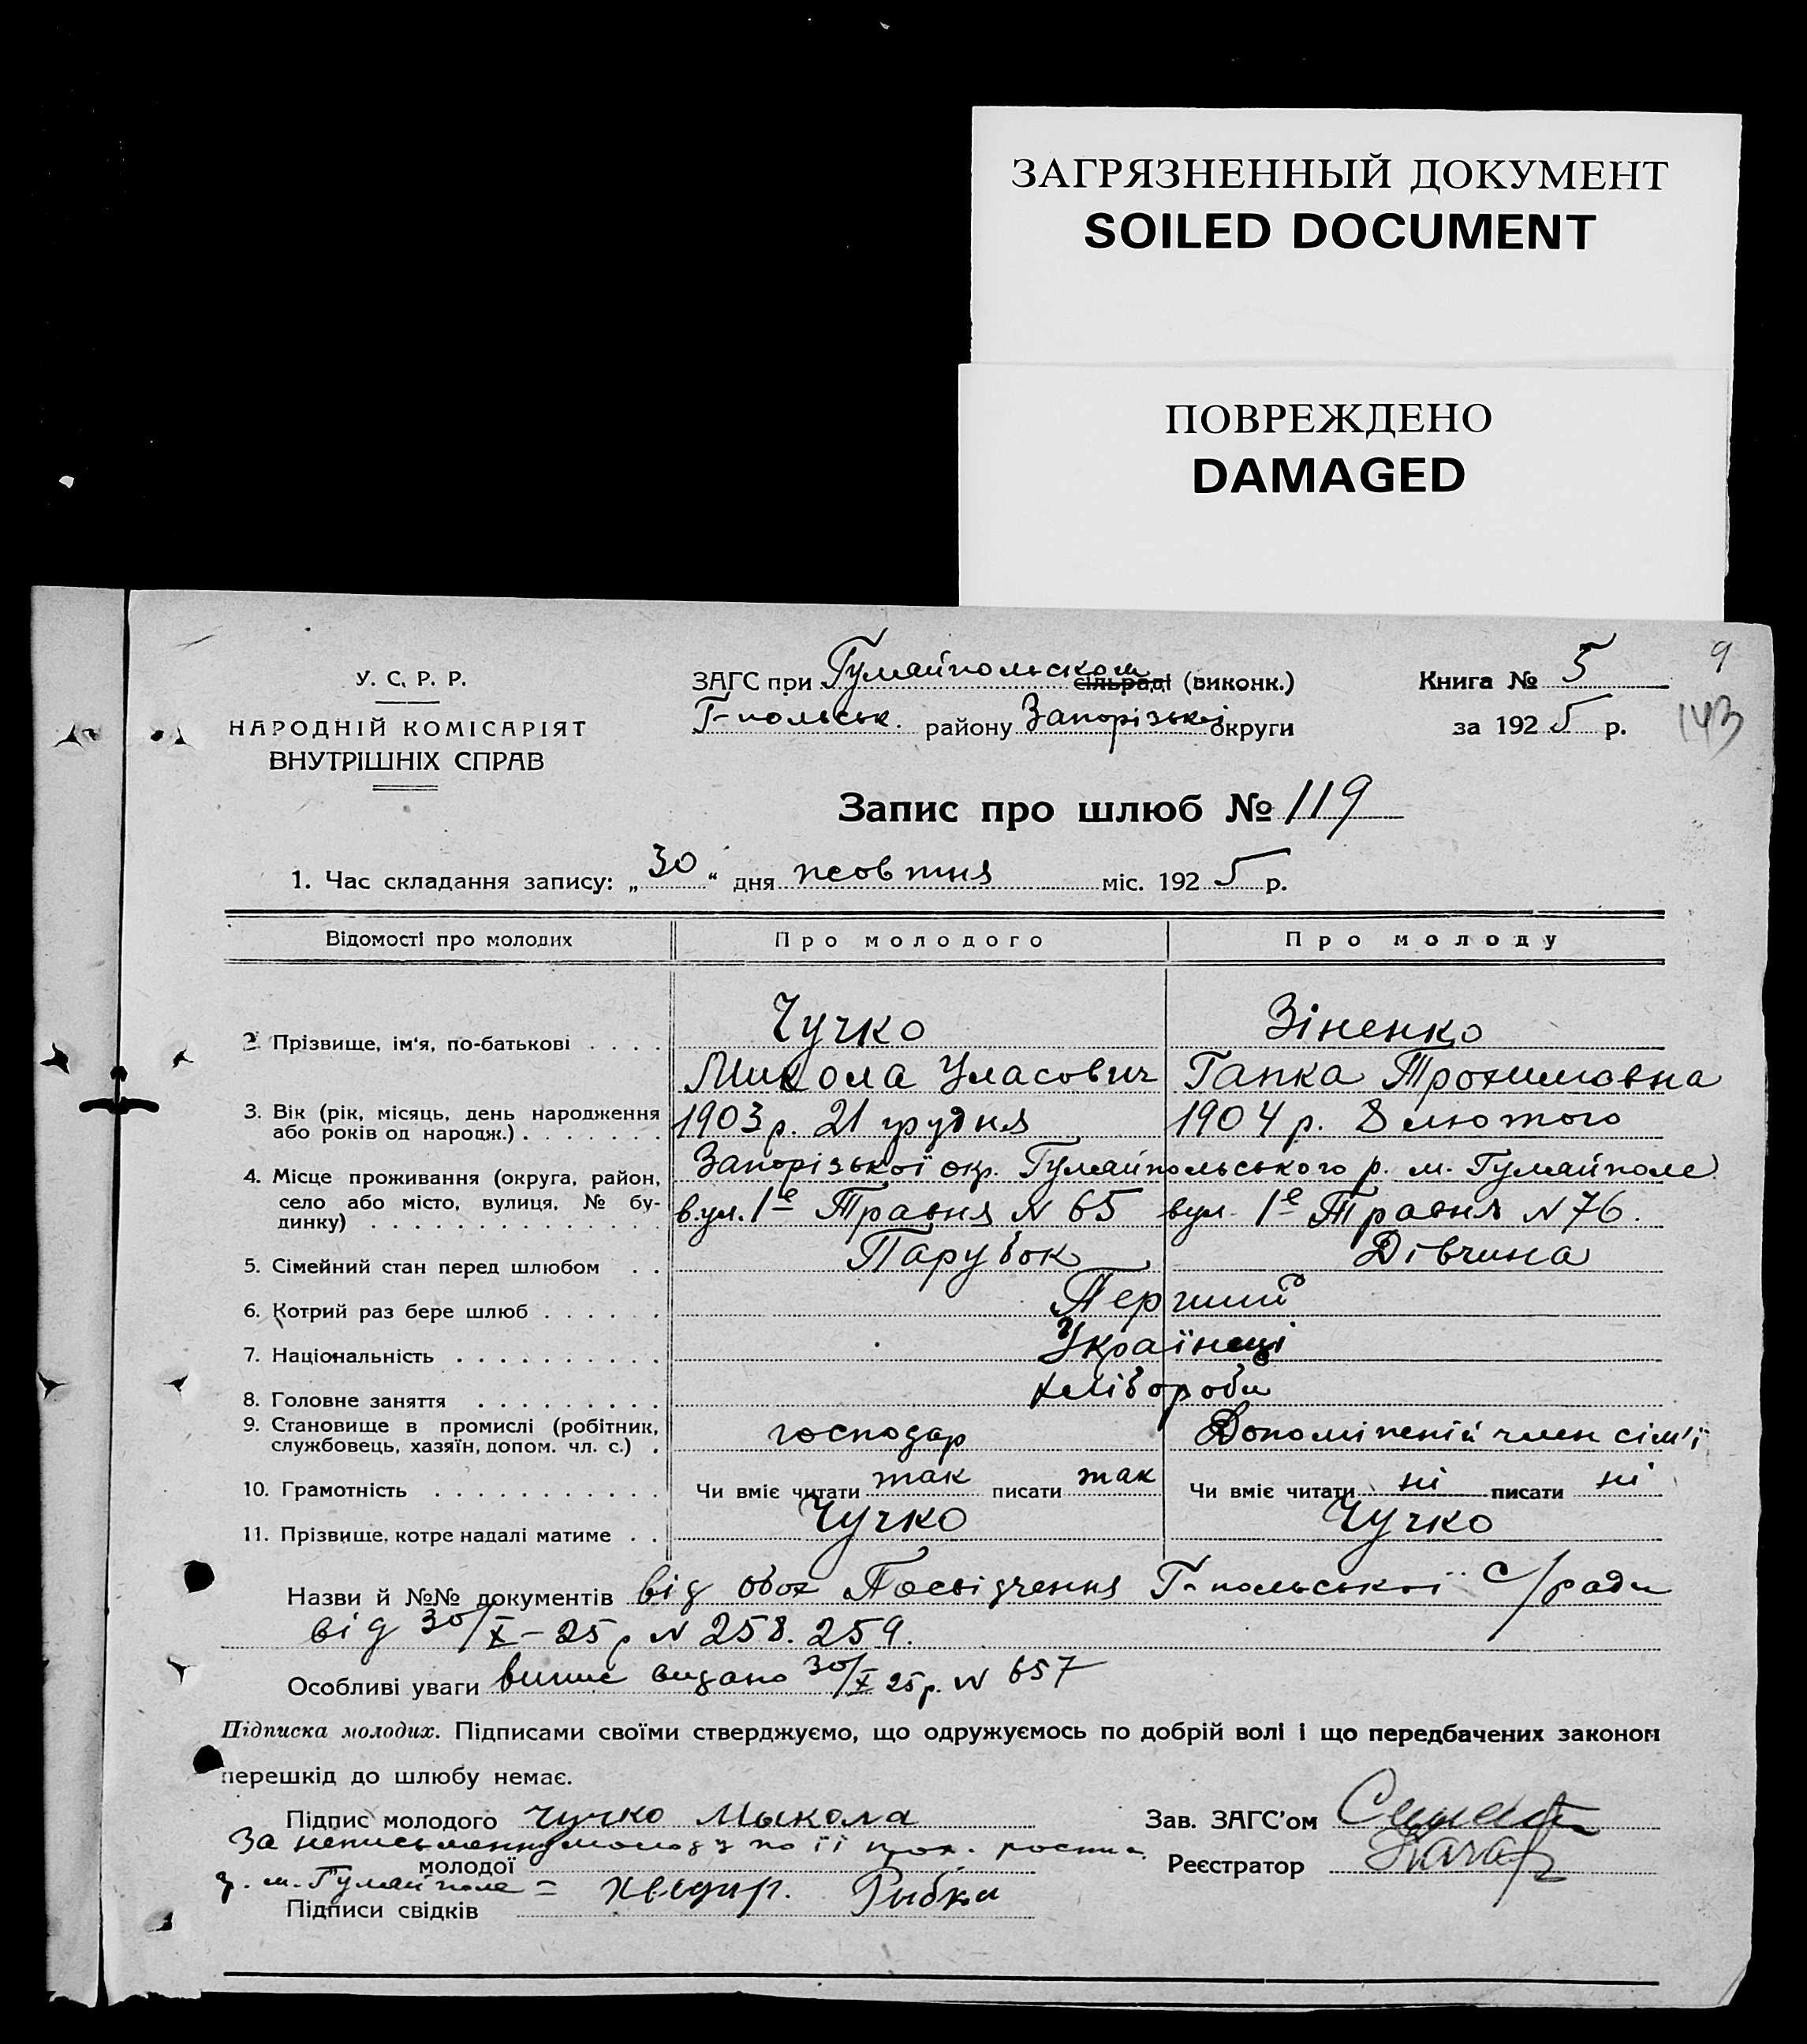 ЗАГРЯЗНЕННЫЙ ДОКУМЕНТ
SOILED DOCUMENT
ПОВРЕЖДЕНО
DAMAGED
9
143
У. С. Р. Р.
НАРОДНІЙ КОМІСАРІЯТ
ВНУТРІШНІХ СПРАВ
ЗАГС при Гуляйпольском сільраді (виконк.)
Г-польськ. району Запорізької округи
Книга № 5
за 1925 р.
Запис про шлюб № 119
1. Час складання запису: „30“ дня жовтня міс. 1925 р.
Відомості про молодих Про молодого Про молоду
2 Прізвище, ім'я, по-батькові . . . . Чучко Зіненко
Микола Уласович Гапка Трохимовна
3. Вік (рік, місяць, день народження або років од народж.) . . . . . . . 1903 р. 21 грудня 1904 р. 8 лютого
4. Місце проживання (округа, район, село або місто, вулиця, № будинку) . . . . . . . . . . . . . . Запорізької окр. Гуляйпольського р. м. Гуляйполе
вул. 1е Травня N 65 вул. 1е Травня N 76.
5. Сімейний стан перед шлюбом . . Парубок Дівчина
6. Котрий раз бере шлюб . . . . . . Перший
7. Національність . . . . . . . . . . Українці
8. Головне заняття . . . . . . . . . хлібороби
9. Становище в промислі (робітник, службовець, хазяїн, допом. чл. с.) . господар Допоміжній член сім'ї
10. Грамотність . . . . . . . . . . . Чи вміє читати так писати так Чи вміє читати ні писати ні
11. Прізвище, котре надалі матиме . . Чучко Чучко
Назви й №№ документів від обох Посвідчення Г-польської с/ради
від 30/X-25 р N 258. 259.
Особливі уваги випис видано 30/X 25 р. N 657
Підписка молодих. Підписами своїми стверджуємо, що одружуємось по добрій волі і що передбачених законом
перешкід до шлюбу немає.
Підпис молодого Чучко Мыкола
За неписьменну молоду по її прох. росписа
молодої
г. м. Гуляйполе =
Підписи свідків Рыбка
Зав. ЗАГС'ом
Реєстратор